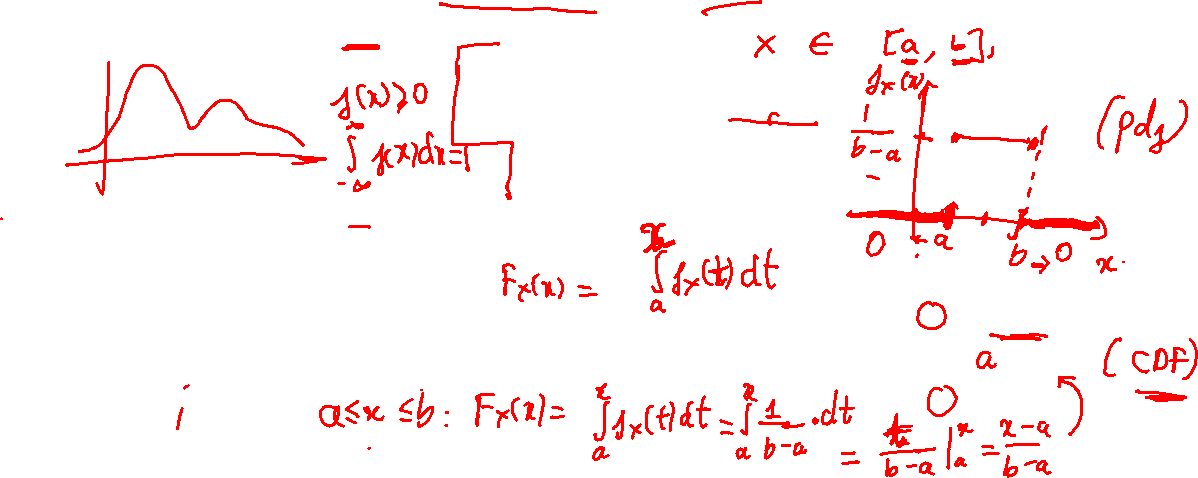 x ∈ [a, b],
f(x) ≥ 0
∫_{-∞}^{∞} f(x)dx = 1
f_X(x)
1/(b-a)
(pdf)
0 a b → 0 x
F_X(x) = ∫_a^x f_X(t) dt
0
a
(CDF)
i a ≤ x ≤ b : F_X(x) = ∫_a^x f_X(t) dt = ∫_a^x 1/(b-a) · dt = t/(b-a) |_a^x = (x-a)/(b-a)
0